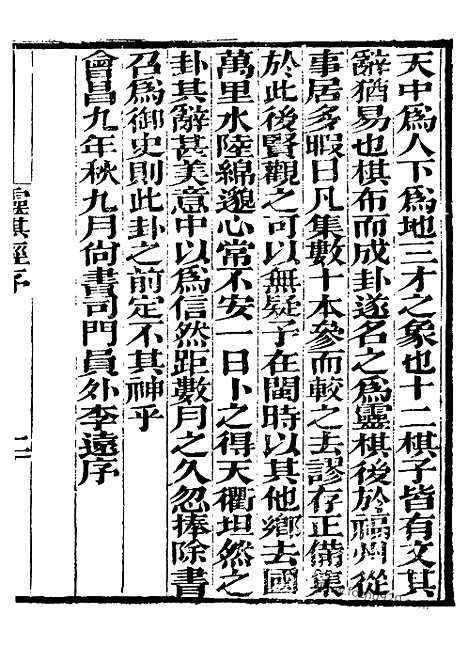 天中爲人下爲地三才之象也十二棋子皆有文其
辭猶易也棋布而成卦遂名之爲靈棋後於福州從
事居多暇日凡集數十本參而較之去謬存正備集
於此後賢觀之可以無疑予在閩時以其他鄉去國
萬里水陸綿邈心常不安一日卜之得天衢坦然之
卦其辭甚美意中以爲信然距數月之久忽捧除書
召爲御史則此卦之前定不其神乎
會昌九年秋九月尚書司門員外李遠序
靈棋經序
二